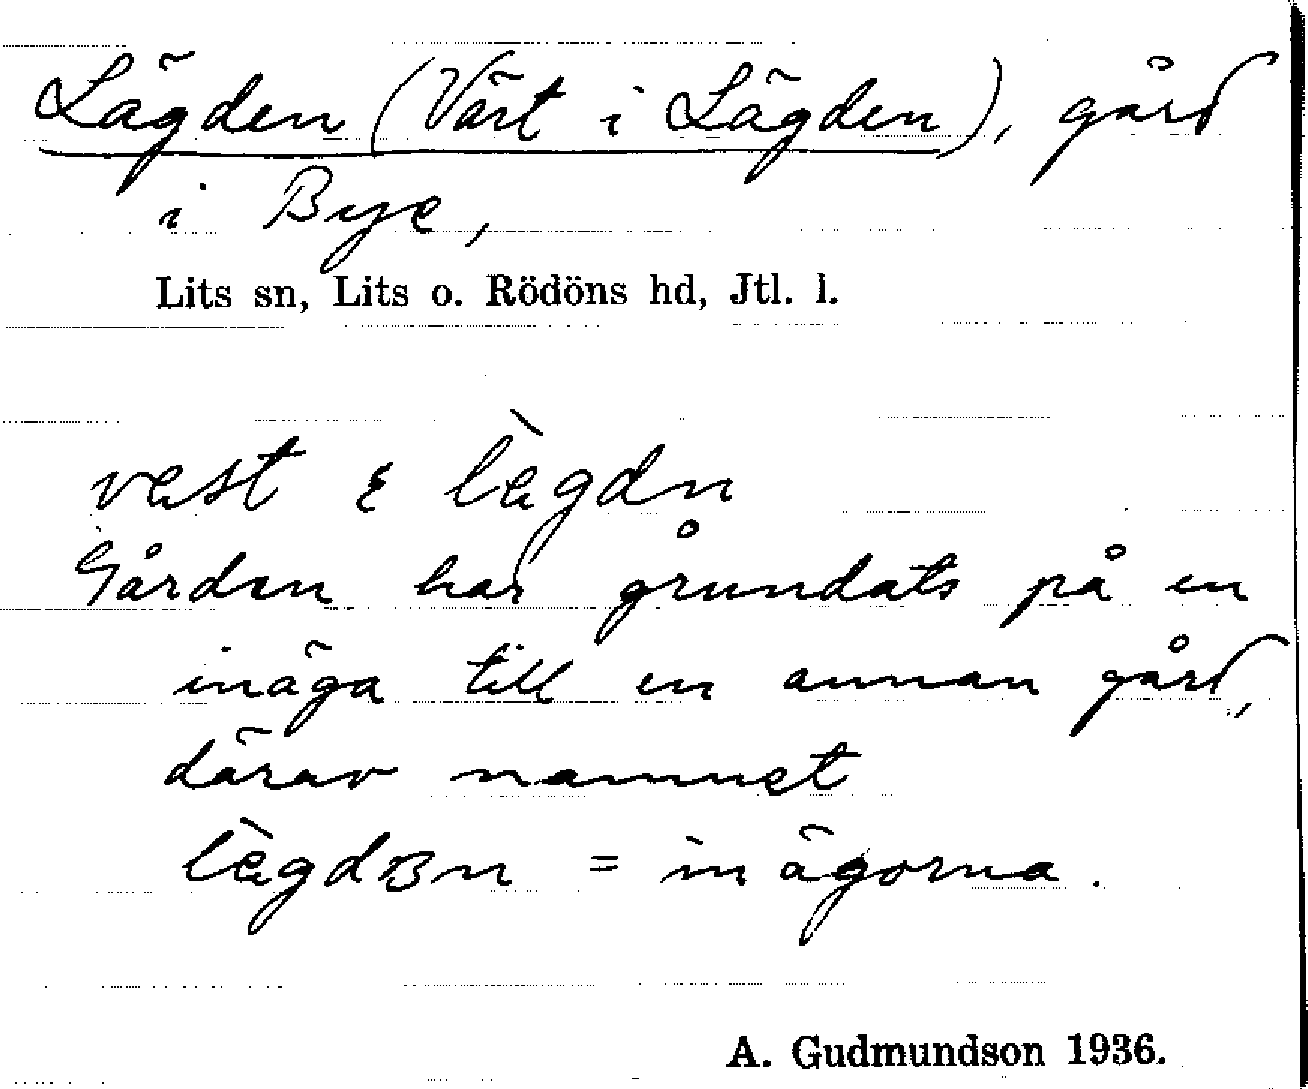 Lägden (Väst i Lägden), gård
i Bye,
Lits sn, Lits o. Rödöns hd, Jtl. l.
vast ɛ lægdn̥
Gården har grundats på en
inäga till en annan gård,
därav namnet
lægdɞn = inägorna.
A. Gudmundson 1936.